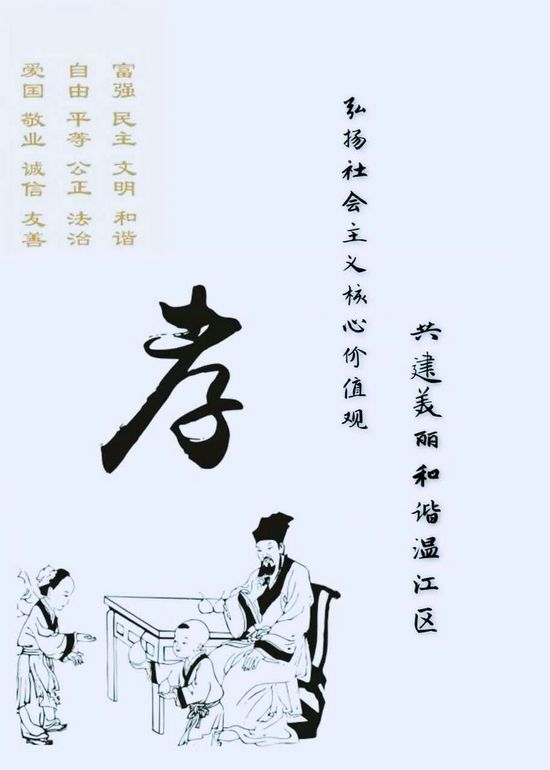 富强 民主 文明 和谐
自由 平等 公正 法治
爱国 敬业 诚信 友善
弘扬社会主义核心价值观
共建美丽和谐温江区
孝